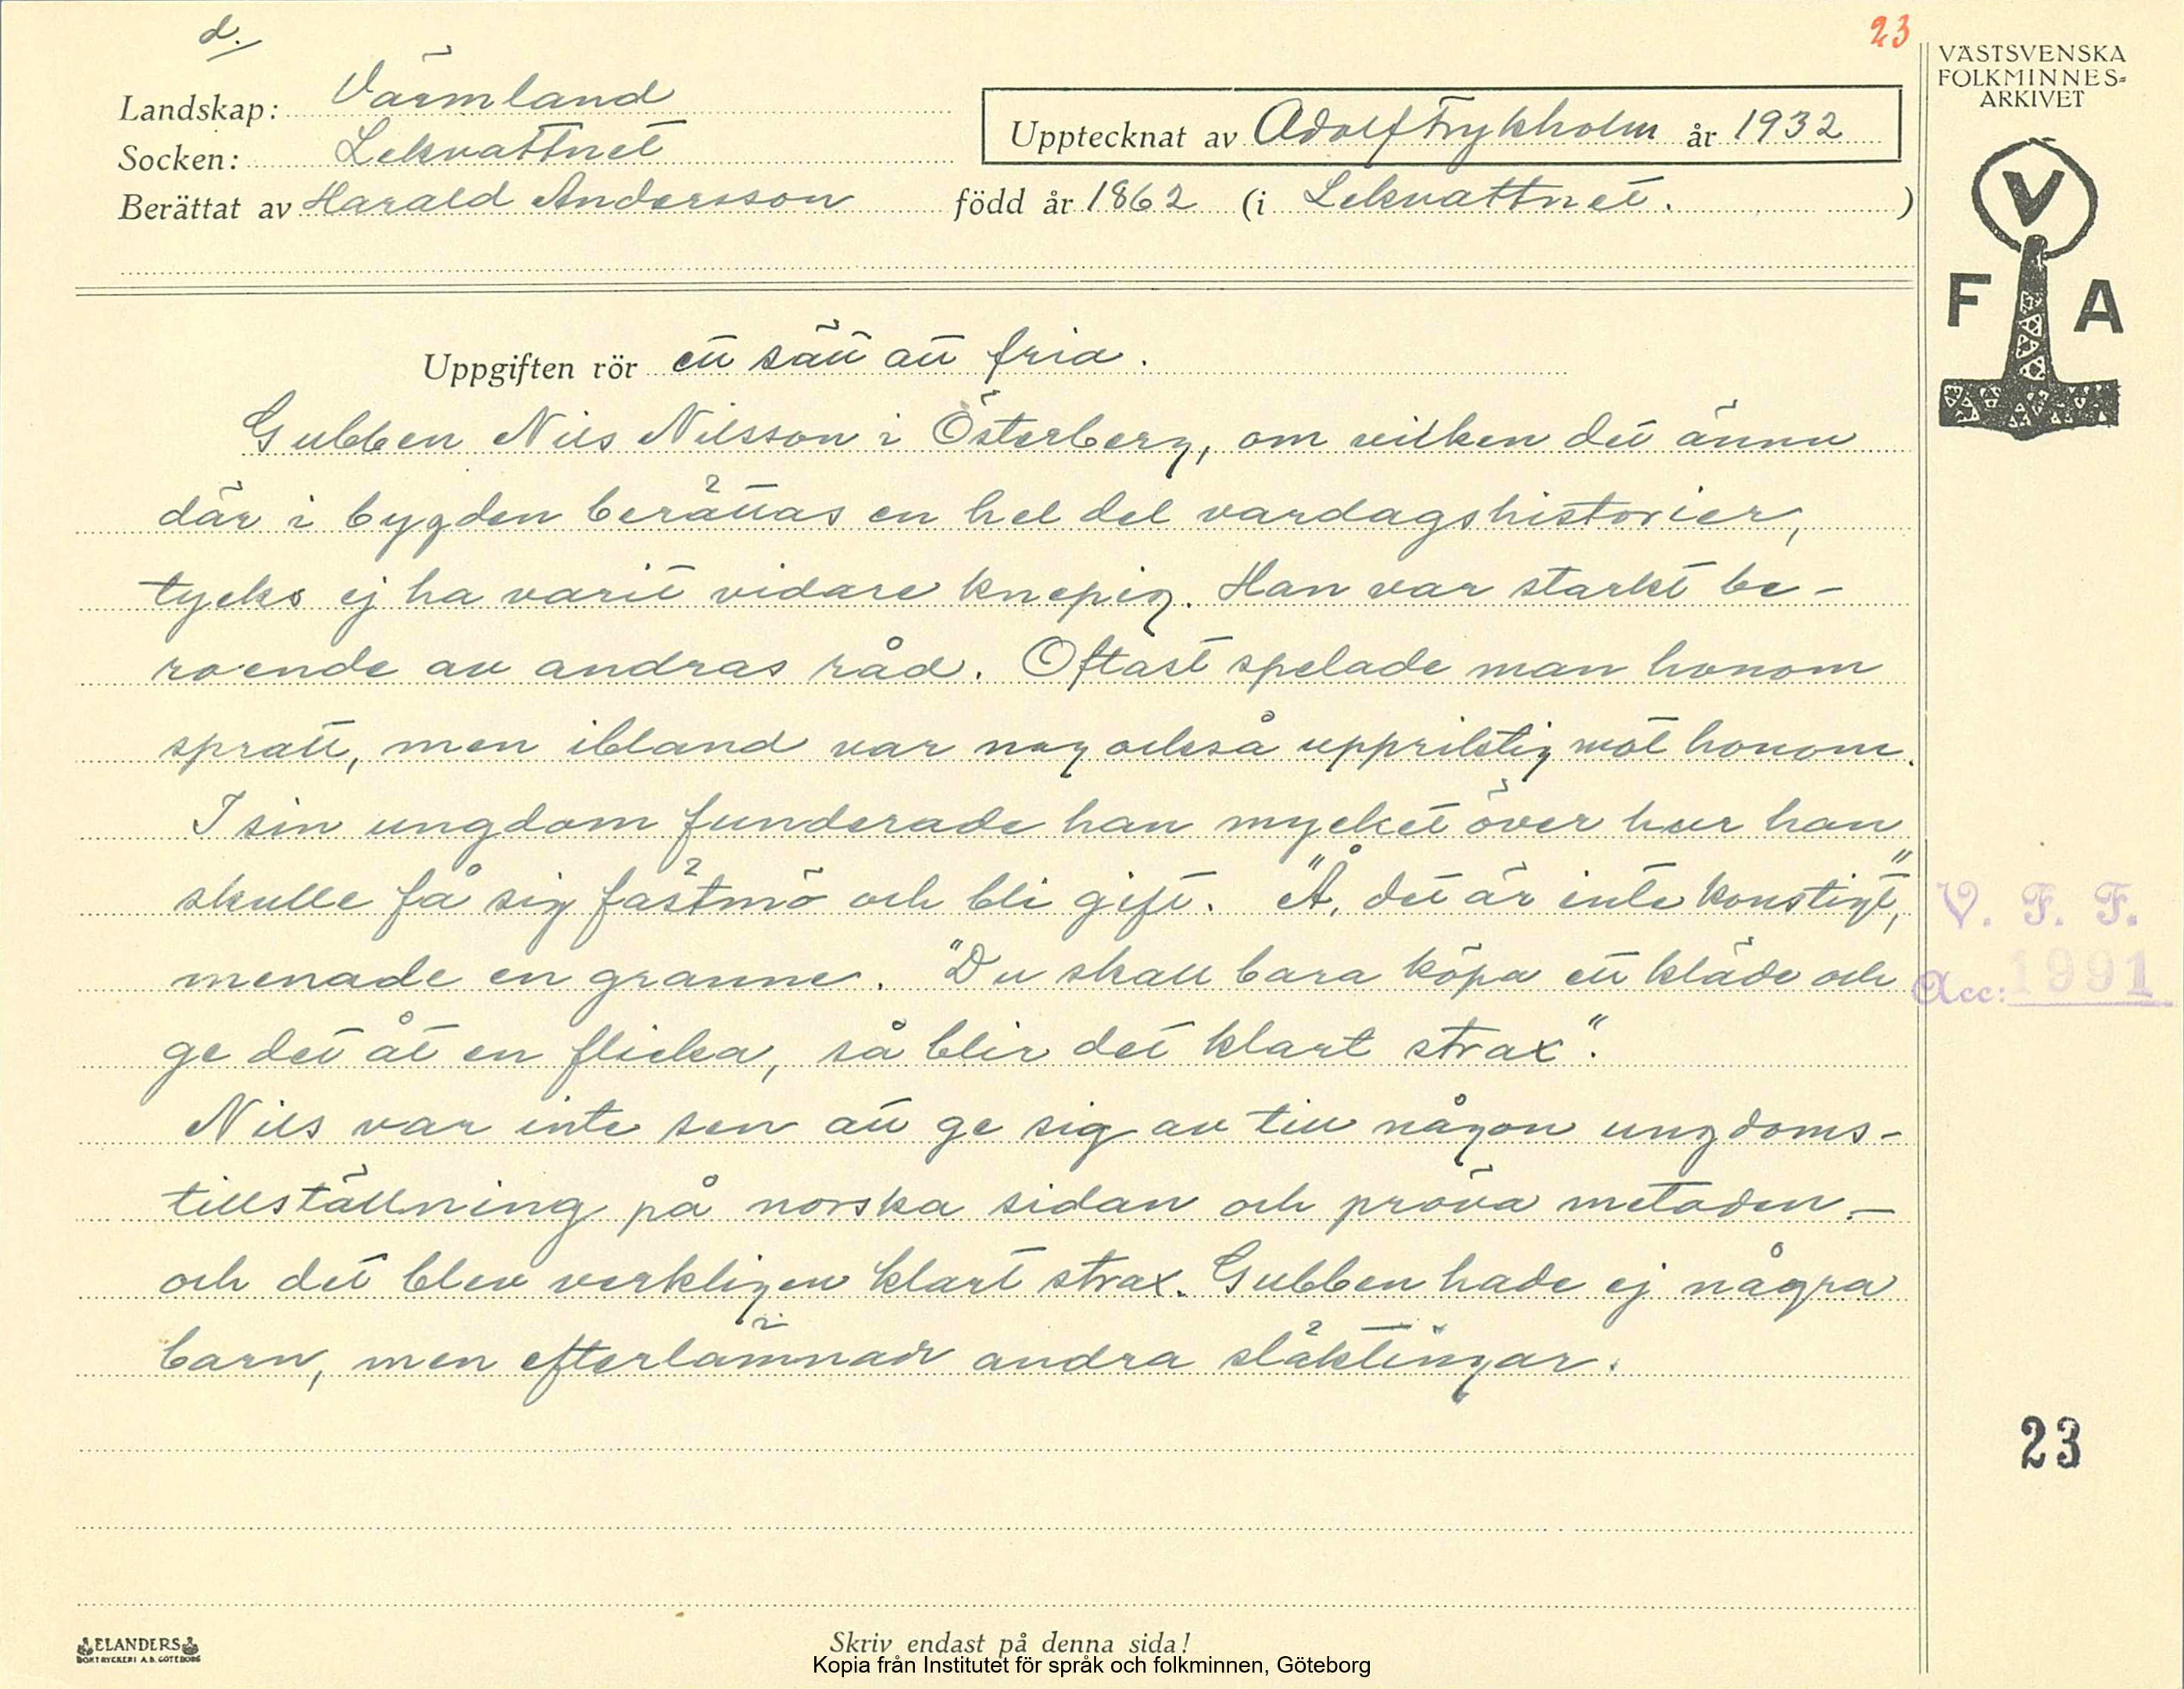 d.
23
VÄSTSVENSKA
FOLKMINNES-
ARKIVET
Landskap: Värmland
Socken: Lekvattnet
Upptecknat av Adolf Frykholm år 1932
Berättat av Harald Andersson född år 1862 (i Lekvattnet. )
V
F A
Uppgiften rör ett sätt att fria.
Gubben Nils Nilsson i Österberg, om vilken det ännu
där i bygden berättas en hel del vardagshistorier,
tycks ej ha varit vidare knepig. Han var starkt be-
roende av andras råd. Oftast spelade man honom
spratt, men ibland var nog också uppriktig mot honom.
I sin ungdom funderade han mycket över hur han
skulle få sig fästmö och bli gift. "Å, det är inte konstigt,"
menade en granne. "Du skall bara köpa ett kläde och
ge det åt en flicka, så blir det klart strax".
Nils var inte sen att ge sig av till någon ungdoms-
tillställning på norska sidan och pröva metoden. –
och det blev verkligen klart strax. Gubben hade ej några
barn, men efterlämnade andra släktingar.
V. F. F.
Acc: 1991
23
ELANDERS
BOKTRYCKERI A.B. GÖTEBORG
Skriv endast på denna sida!
Kopia från Institutet för språk och folkminnen, Göteborg